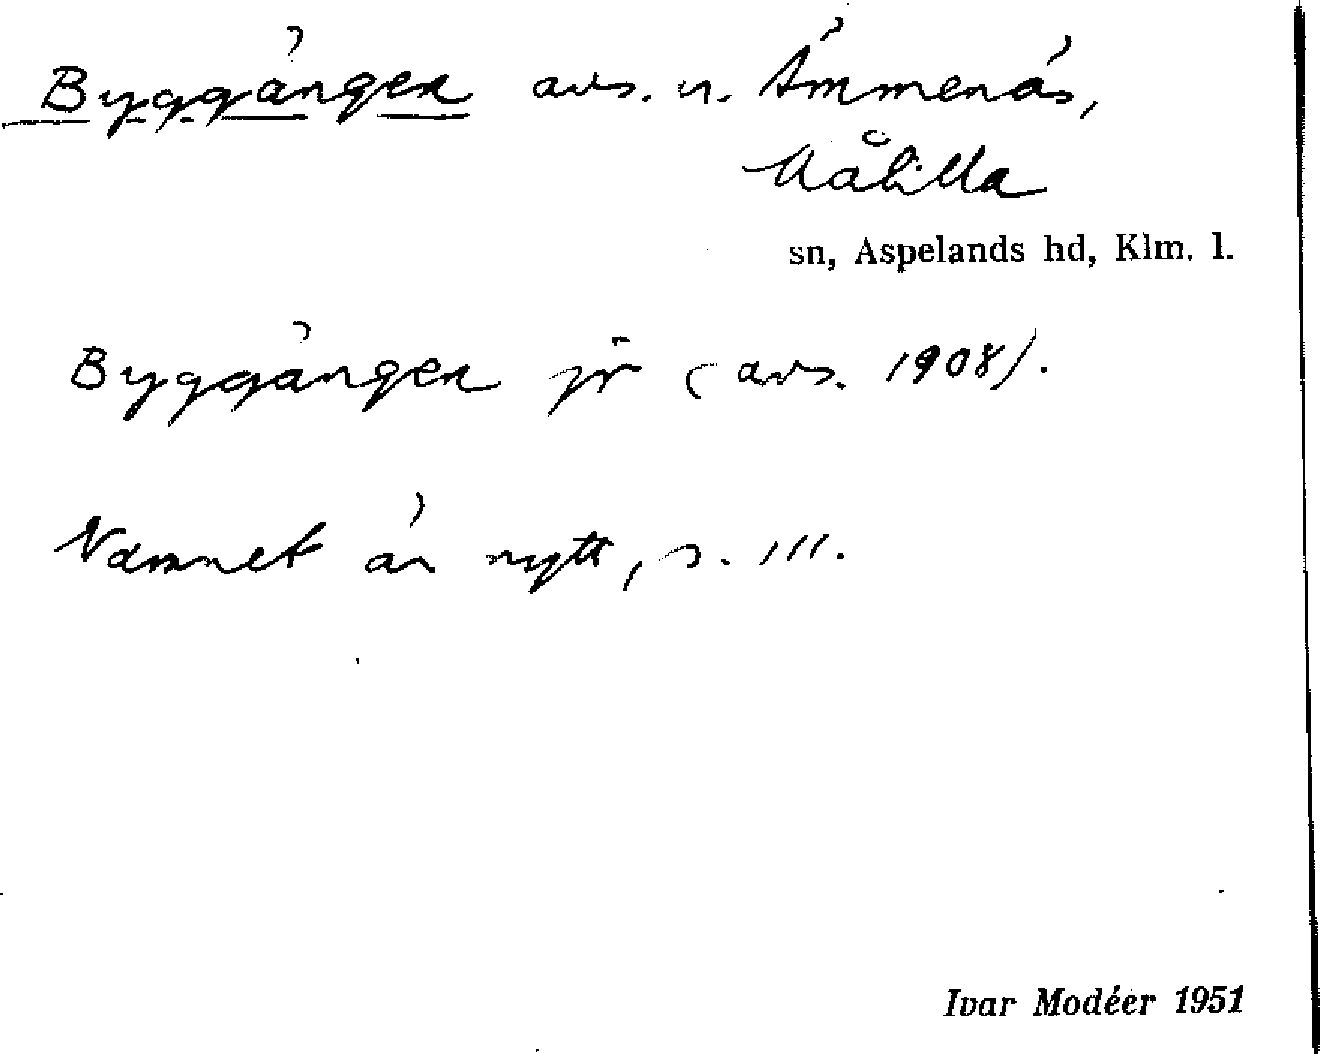 Byggängen avs. u. Ämmenäs,
Målilla
sn, Aspelands hd, Klm. l.
Byggängen jr (avs. 1908).
Namnet är nytt, s. 111.
Ivar Modéer 1951